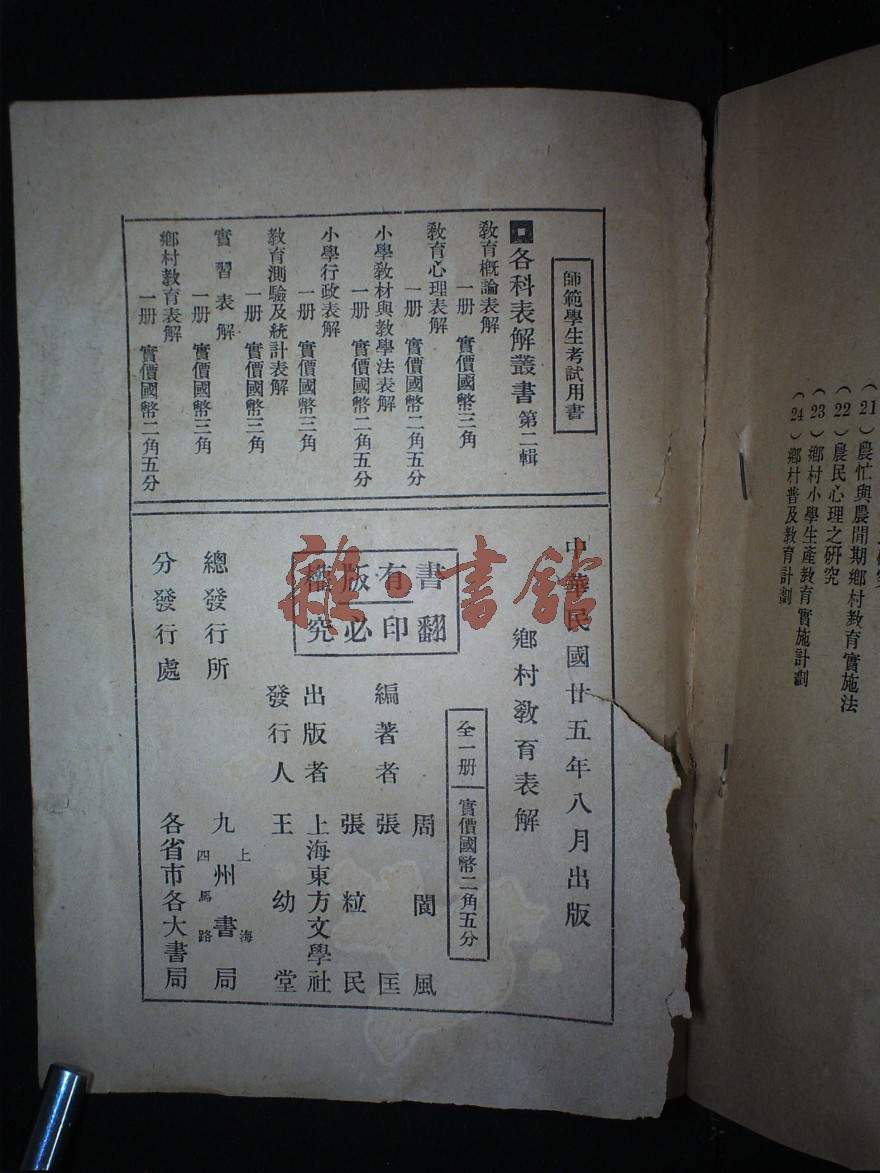 師範學生考試用書
各科表解叢書 第二輯
教育概論表解
一册 實價國幣三角
教育心理表解
一册 實價國幣二角五分
小學教材與教學法表解
一册 實價國幣二角五分
小學行政表解
一册 實價國幣三角
教育測驗及統計表解
一册 實價國幣三角
實習表解
一册 實價國幣三角
鄉村教育表解
一册 實價國幣二角五分
中華民國廿五年八月出版
鄉村教育表解
全一册 實價國幣二角五分
書有版權
翻印必究
編著者
周閬風
張匡
張粒民
出版者 上海東方文學社
發行人 王幼堂
總發行所 上海四馬路 九州書局
分發行處 各省市各大書局
雜·書館
(21)農忙與農閒期鄉村教育實施法
(22)農民心理之研究
(23)鄉村小學生產教育實施計劃
(24)鄉村普及教育計劃